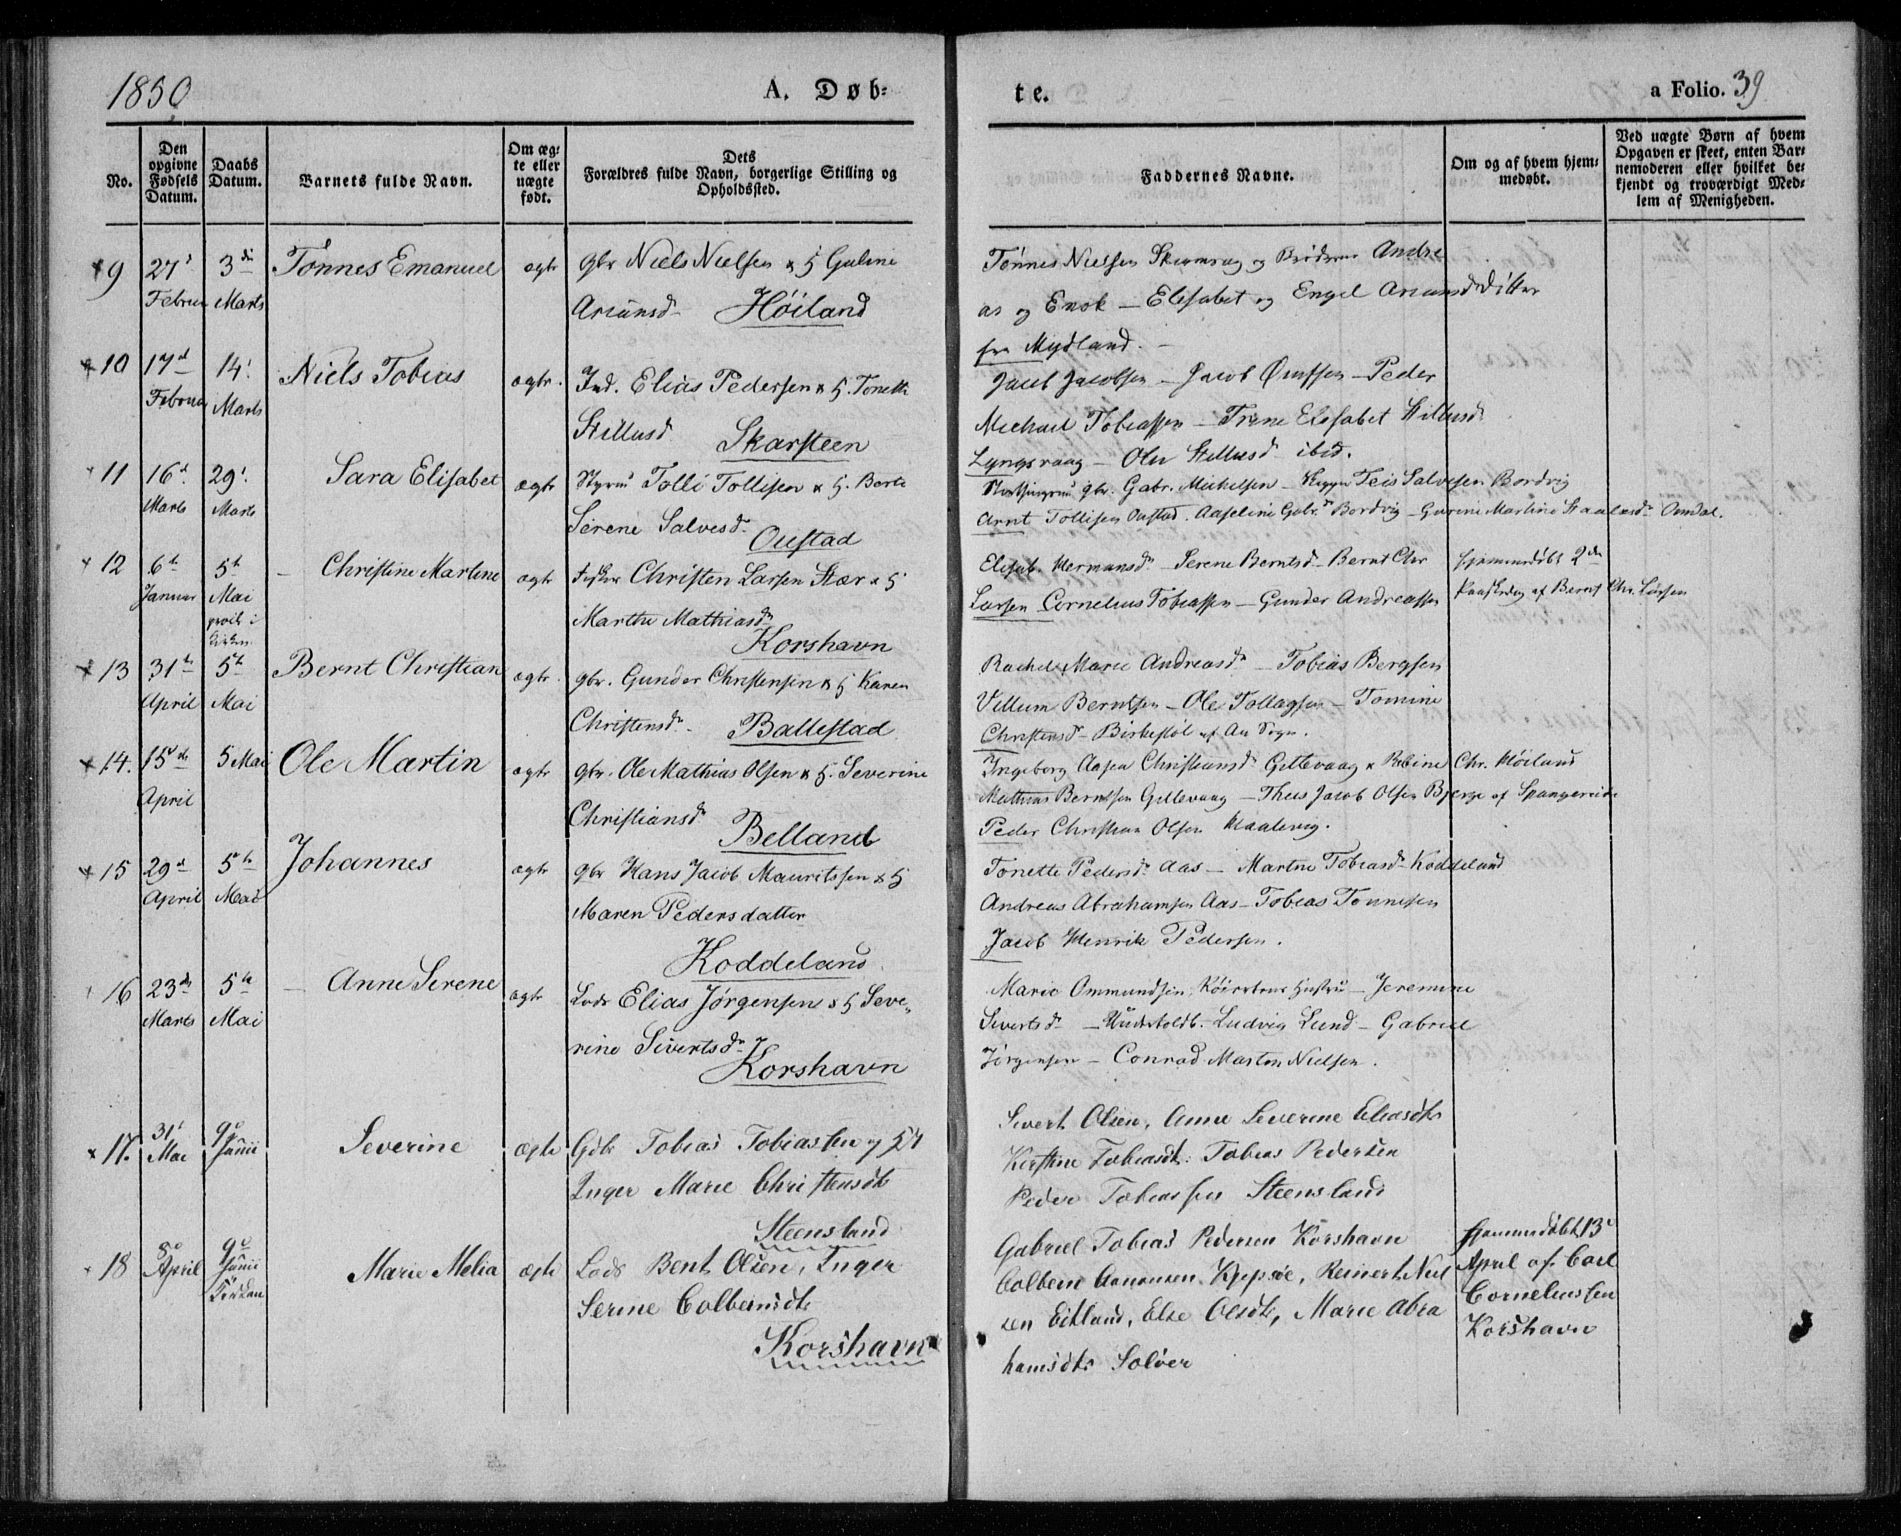 1850
A. Døb-
te.
a Folio. 39
No.
Den opgivne Fødsels Datum.
Daabs Datum.
Barnets fulde Navn.
Om æg-te eller uægte født.
Dets
Forældres fulde Navn, borgerlige Stilling og
Opholdssted.
Faddernes Navne.
Om og af hvem hjem-
medøbt.
Ved uægte Børn af hvem
Opgaven er skeet, enten Bar-
nemoderen eller hvilket be-
kjendt og troværdigt Med-
lem af Menigheden.
9 27 Februar 3die Marts Tønnes Emanuel ægte gbr Niels Nielsen & H Guline
Høiland
Tønnes Nielsen og Brødrene Andre
as og Enok – Elisabet og Engel
fra Mydland. –
10 17d Februar 14 Marts Niels Tobias ægte. Ind. Elias Pedersen & H. Tonette
Skarsteen
Jacob Jacobsen – Jacob – Peder
Michael Tobiassen – Trine Elisabet
Lyngsvaag – ibid.
11 16d Marts 29 Marts Sara Elisabet ægte Styrm Tolli Tollisen & H. Berte
Serene Salvesd.
Oustad
gbr. Gabr. Michelsen – Teis Salvesen Bordvig
Arnt Tollisen Oustad. Aaseline Gabr.d. Bordvig – Martine
12 6te Januar 5te Mai prov. i Kirken – Christine Martine ægte Christen Larsen Stær & H
Marthe Mathiasd.
Korshavn
Elisab. Hermansd. – Serene Berntsd – Bernt Chr
Larsen Cornelius Tobiassen – Gunder Andreassen
hjemmedøbt 2den
Paaskedag af Bernt Chr. Larsen
13 31te April 5te Mai Bernt Christian ægte. gbr. Gunder Christensen & H Karen
Christensd. Ballestad
Rachel Marie Andreasd. – Tobias Bergsen
Villum Berntsen – Ole Tollagsen – Tomine
Christensd – af Aa Sogn.
14. 15de April 5 Mai Ole Martin ægte gbr. Ole Mathias Olsen & H. Severine
Christiansd.
Belland
Ingeborg Aasen Christiansd. Gittevaag & Chr. Høiland
Mathias Berntsen Gittevaag – Theis Jacob Olsen Bjerge af Spangereid
Peder Christian Olsen
15 29d April 5te Mai Johannes ægte gbr Hans Jacob Mauritssen & H
Maren Pedersdatter
Koddeland
Tonette Pedersd. Aas – Martne Tobiasd. Koddeland
Andreas Abrahamsen Aas – Tobias Tønnesen
Jacob Henrik Pedersen.
16 23de Marts 5te Mai – Anne Serene ægte Lods Elias Jørgensen & H Seve-
rine Sivertsd.
Korshavn
Marie Ommundsen, Hustru – Jeremine
Sivertsd – Ludvig Lund – Gabriel
Jørgensen – Conrad Martin Nielsen.
17. 31 Mai 9de Junii Severine ægte Gdbr Tobias Tobiassen og H
Inger Marie Christensdtr
Steensland
Sivert Olsen, Anne Severine Eliasdtr
Kirstine Tobiasdt. Tobias Pedersen
Peder Tobiassen Steensland
18 8de April 9de Junii Kirken Marie Melia ægte Lods Bent Olsen, Inger
Serine Colbensdtr
Korshavn
Gabriel Tobias Pedersen Korshavn
Colben Aanensen Kjepsøe, Reinert Niel
sen Eitland, Else Olsdtr, Marie Abra
hamsdtr Solver
Hjemmedøbt 13de
April af Carl
Corneliussen
Korshavn